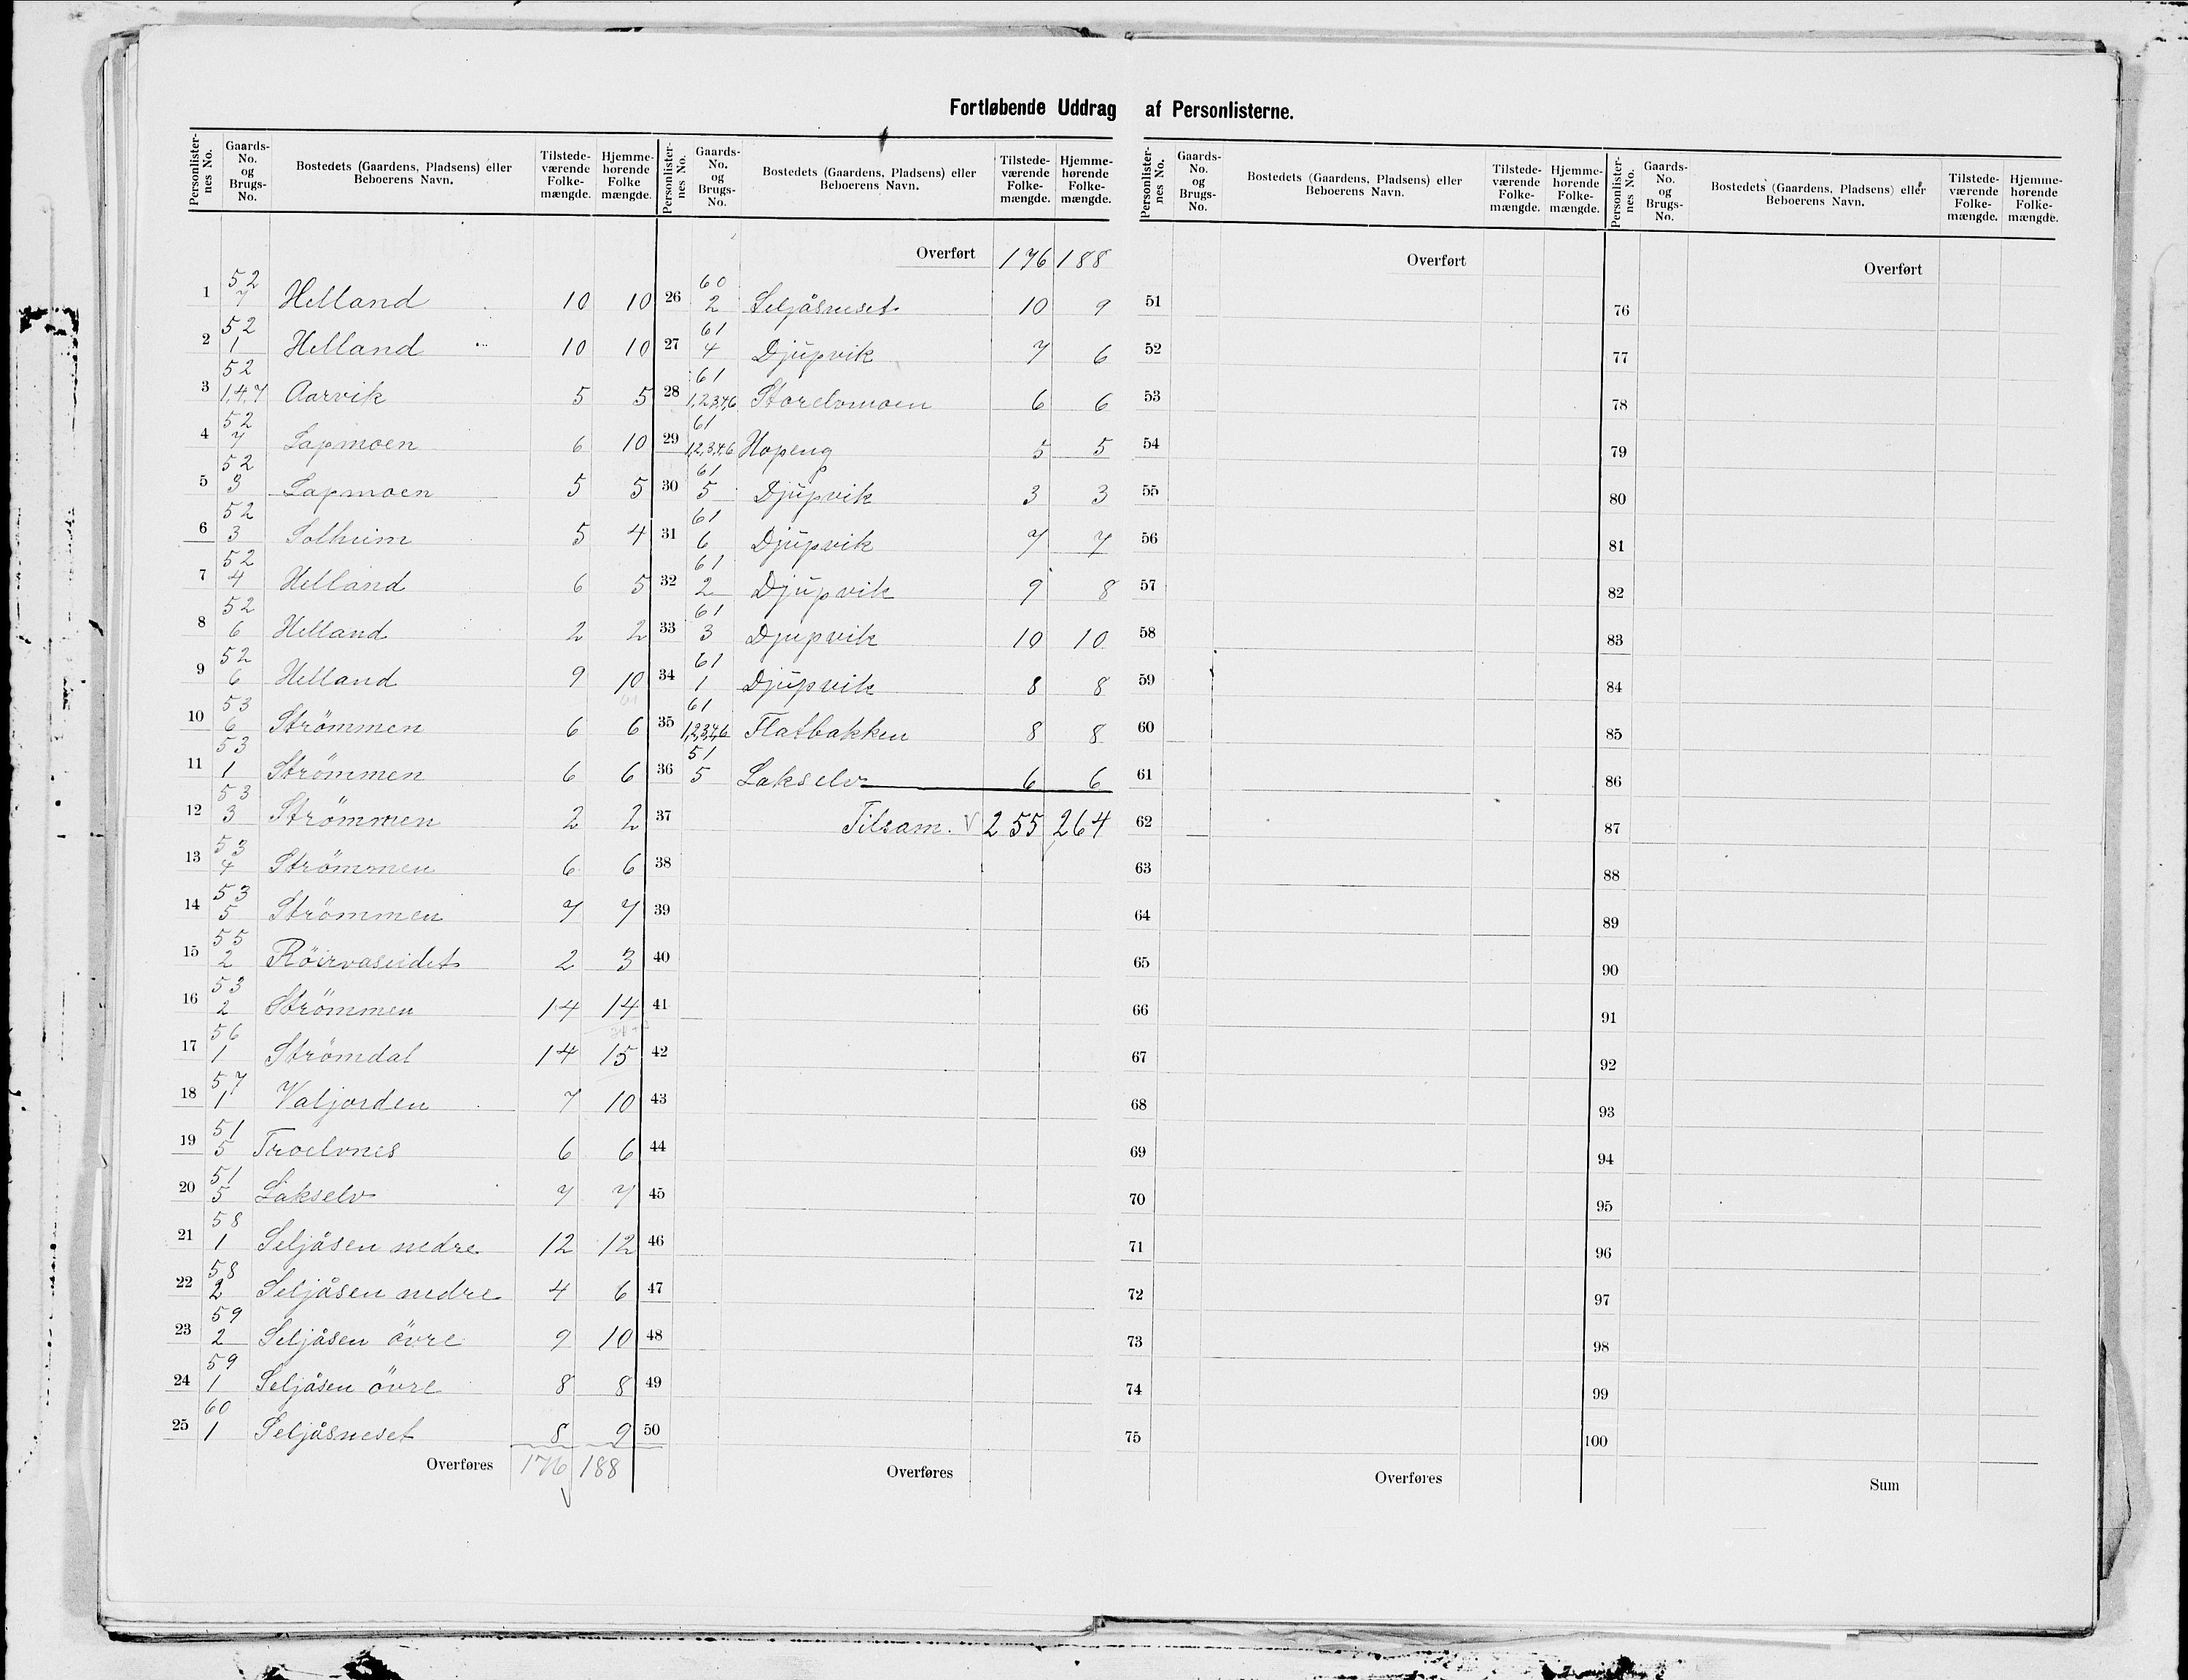 Fortløbende Uddrag af Personlisterne.
Personlisternes No. Gaards-No. og Brugs-No. Bostedets (Gaardens, Pladsens) eller Beboerens Navn. Tilstedeværende Folkemængde. Hjemmehørende Folke mængde.
1 52 7 Helland 10 10
2 52 1 Helland 10 10
3 52 1,4,7 Aarvik 5 5
4 52 7 Lapmoen 6 10
5 52 3 Lapmoen 5 5
6 52 3 Solheim 5 4
7 52 4 Helland 6 5
8 52 6 Helland 2 2
9 52 6 Helland 9 10
10 53 6 Strömmen 6 6
11 53 1 Strömmen 6 6
12 53 3 Strömmen 2 2
13 53 4 Strömmen 6 6
14 53 5 Strömmen 7 7
15 55 2 Röirvaseidet 2 3
16 53 2 Strömmen 14 14
17 56 1 Strömdal 14 15
18 57 1 Valjorden 7 10
19 51 5 Troelvnes 6 6
20 51 5 Lakselv 7 7
21 58 1 Seljåsen nedre 12 12
22 58 2 Seljåsen nedre 4 6
23 59 2 Seljåsen övre 9 10
24 59 1 Seljåsen övre 8 8
25 60 1 Seljåsneset 8 9
Overføres 176 188
Personlisternes No. Gaards-No. og Brugs-No. Bostedets (Gaardens, Pladsens) eller Beboerens Navn. Tilstedeværende Folkemængde. Hjemmehørende Folkemængde.
Overført 176 188
26 60 2 Seljåsneset 10 9
27 61 4 Djupvik 7 6
28 61 1,2,3,4,6 Storelvmoen 6 6
29 61 1,2,3,4,6 Hopeng 5 5
30 61 5 Djupvik 3 3
31 61 6 Djupvik 7 7
32 61 2 Djupvik 9 8
33 61 3 Djupvik 10 10
34 61 1 Djupvik 8 8
35 61 1,2,3,4,6 Flatbakken 8 8
36 51 5 Lakselv 6 6
37 Tilsam. V 255 264
38
39
40
41
42
43
44
45
46
47
48
49
50
Overføres
Personlisternes No. Gaards-No. og Brugs-No. Bostedets (Gaardens, Pladsens) eller Beboerens Navn. Tilstedeværende Folkemængde. Hjemmehørende Folkemængde.
Overført
51
52
53
54
55
56
57
58
59
60
61
62
63
64
65
66
67
68
69
70
71
72
73
74
75
Overføres
Personlisternes No. Gaards-No. og Brugs-No. Bostedets (Gaardens, Pladsens) eller Beboerens Navn. Tilstedeværende Folkemængde. Hjemmehørende Folkemængde.
Overført
76
77
78
79
80
81
82
83
84
85
86
87
88
89
90
91
92
93
94
95
96
97
98
99
100
Sum